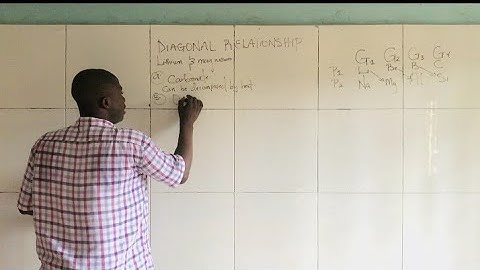 DIAGONAL RELATIONSHIP
Lithium & magnesium
① Carbonate
Can be decomposed by heat
②
G1 G2 G3 G4
P2 Li Be B C
P3 Na Mg Al Si